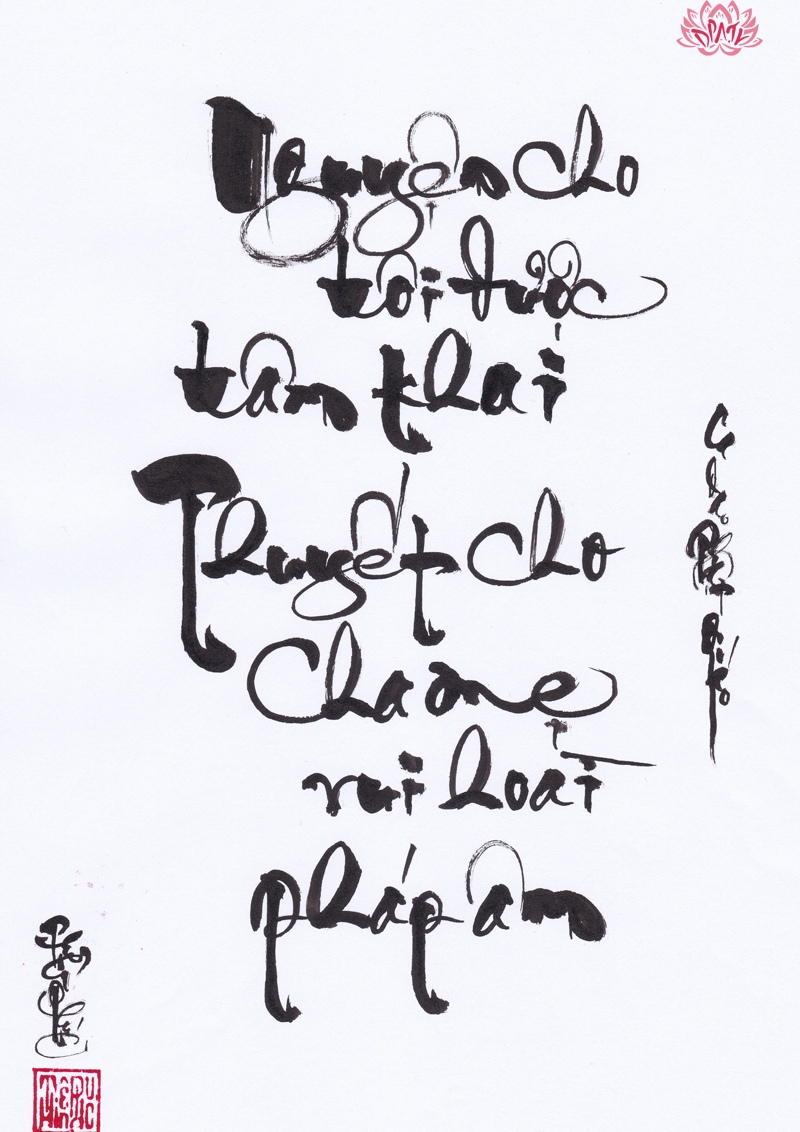 Nguyện cho
tôi được
tâm khai
Thuyết cho
Cha mẹ
vui hoài
pháp âm